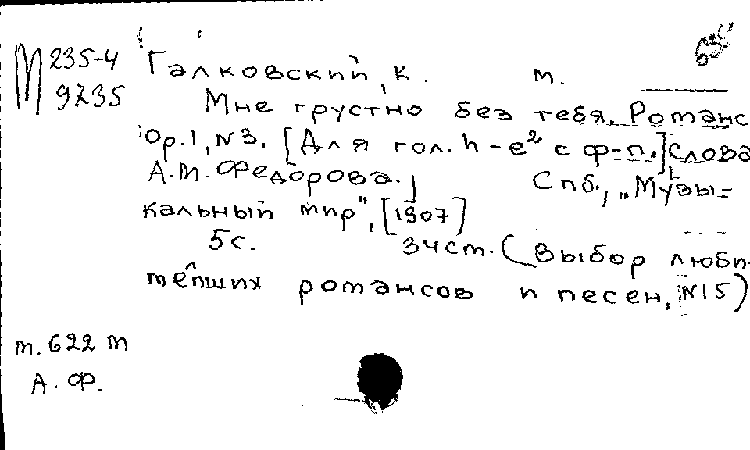 М 235-4
9235
Галковский, К. т.
Мне грустно без тебя. Романс
Op. 1, N3. [Для гол. h - e² с ф-п.] Слова
А.М. Федорова.
Спб., "Музы-
кальный мир", [1907]
5 с. 34 см. (Выбор люби-
мейших романсов и песен, N15)
т. 622 м
А. Ф.